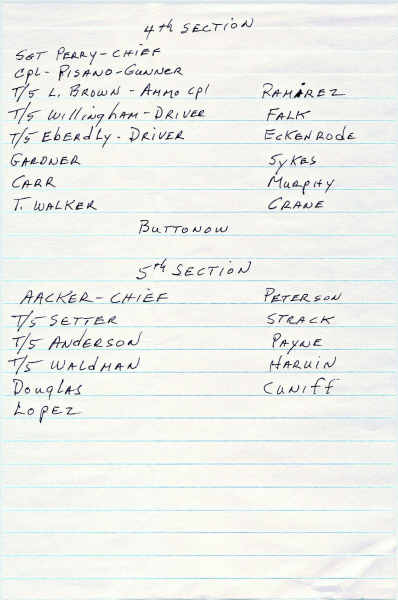 4th SECTION
SGT PERRY-CHIEF
CPL- PISANO-GUNNER
T/5 L. BROWN - AMMO CPL RAMIREZ
T/5 WILLINGHAM-DRIVER FALK
T/5 EBERDLY- DRIVER ECKENRODE
GARDNER SYKES
CARR MURPHY
T. WALKER CRANE
BUTTONOW
5th SECTION
AACKER-CHIEF PETERSON
T/5 SETTER STRACK
T/5 ANDERSON PAYNE
T/5 WALDMAN HARUIN
Douglas CUNIFF
LOPEZ